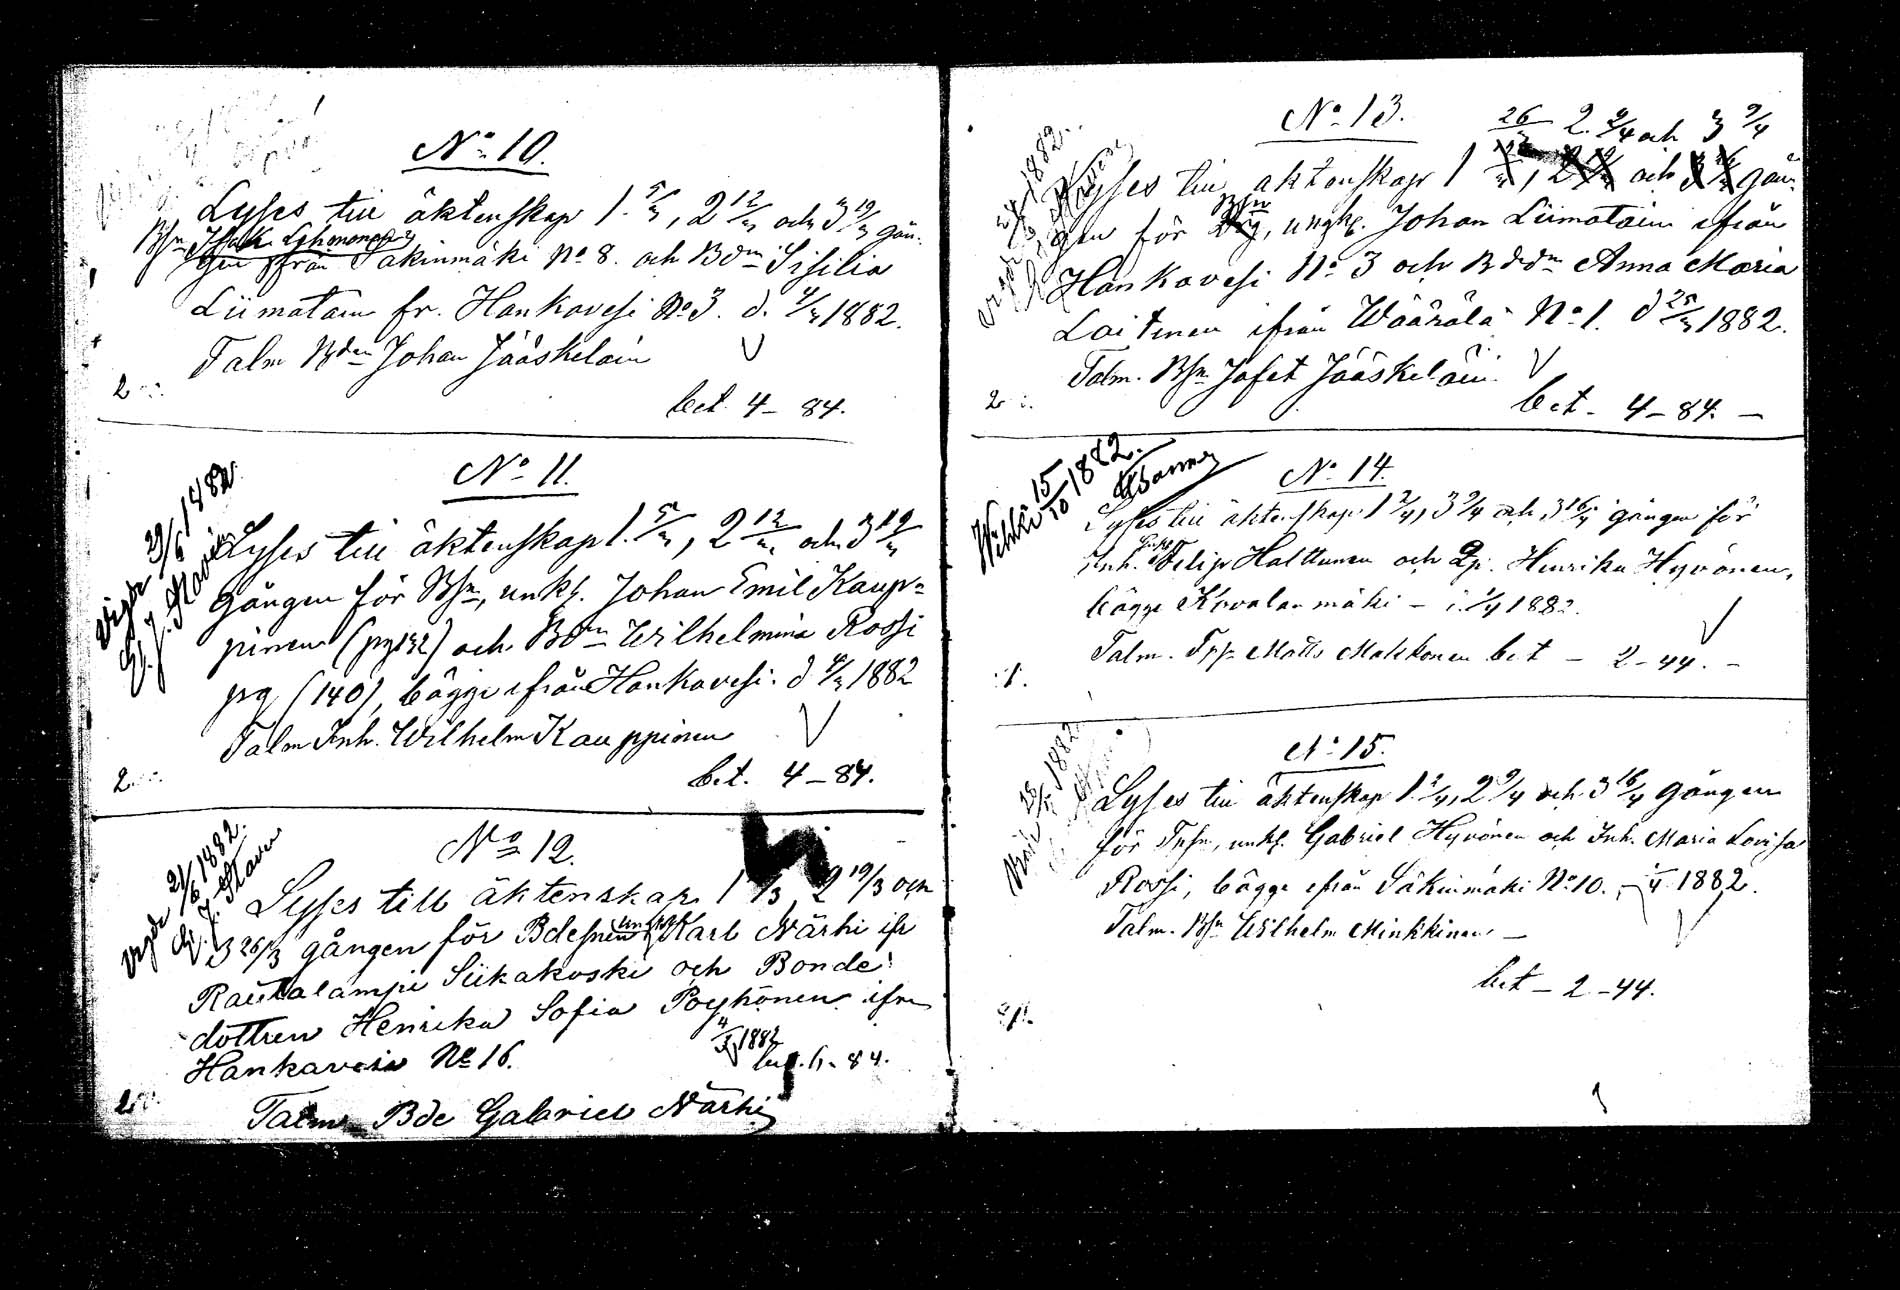 No 10.
Lyses till äktenskap 1. 5/3, 2 12/3 och 3 19/3 gån-
Bsn. Isak Lehmonen
gen från Säkinmäki No 8. och Bdn Sisilia
Liimatain fr. Hankavesi No 3. d. 4/3 1882.
Talm Bden Johan Jääskeläin
2
bet. 4 – 84.
No 11.
Vigde 29/6 1882
Lyses till äktenskap 1. 5/3, 2 12/3 och 3 19/3
gången för Bsn, unkl. Johan Emil Kaup=
pinen (pg 132) och Bdn Wilhelmina Rossi
pg (140), bägge ifrån Hankavesi. d 4/3 1882
Talm Inh. Wilhelm Kauppinen
2
bet. 4 – 84.
No 12.
Vigde 21/6 1882.
Lyses till äktenskap 1 /3 2 19/3 och
3 26/3 gången för Bdesnen Karl Närhi ifr
Rautalampi Siikakoski och Bonde
dottren Henrika Sofia Poyhönen ifrn
Hankavesi No 16.
4/3 1882
84.
Talm Bde Gabriel Närhi
No 13.
26/3 2. 2/4 och 3 9/4
Lyses till äktenskap 1 och gån-
gen för Bsn, ungk. Johan Liimatain ifrån
Hankavesi No 3 och Bddn Anna Maria
Laitinen ifrån Wäärälä No 1. d 25/3 1882.
Talm. Bsn Jafet Jääskeläin.
2
bet – 4 – 84. –
No 14.
Wihki 15/10 1882.
Lyses till äktenskap 1 2/4, 3 9/4 och 3 16/4 gången för
Inh. Filip Halttunen och Henrika Hyvönen,
bägge Kovalanmäki – 1/4 1882.
Talm. Matts Makkonen bet – 2 – 44. –
1.
No 15.
1882
Lyses till äktenskap 1. 2/4, 2 9/4 och 3 16/4 gången
för Tpsn, unkl. Gabriel Hyvönen och Inh. Maria Lovisa
Rossi, bägge ifrån Säkinmäki No 10. 1/4 1882.
Talm. Bsn Wilhelm Minkkinen –
bet – 2 – 44.